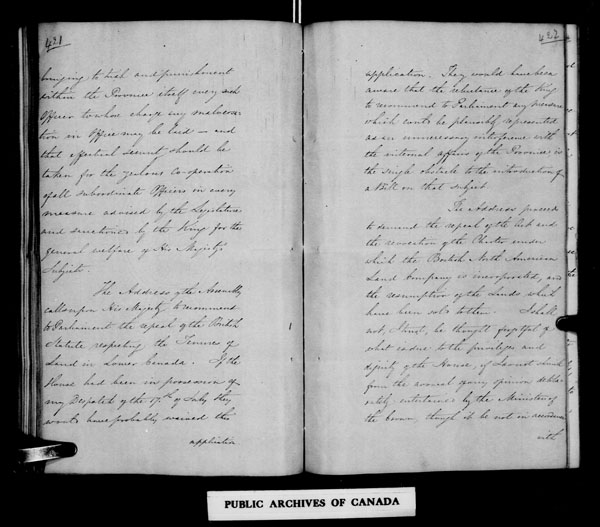 421
bringing to trial and punishment
within the Province itself every such
Officer to whose charge any malversa-
tion in Office may be laid — and
that effectual security should be
taken for the zealous Co-operation
of all subordinate Officers in every
measure advised by the Legislature
and sanctioned by the King for the
general welfare of His Majesty's
Subjects.
The Address of the Assembly
calls upon His Majesty to recommend
to Parliament the repeal of the British
Statute respecting the Tenures of
Land in Lower Canada. If the
House had been in possession of
my Despatch of the 17th of July they
would have probably waived the
application
422
application. They would have been
aware that the reluctance of the King
to recommend to Parliament any measure
which could be plausibly represented
as an unnecessary interference with
the internal affairs of the Province is
the single obstacle to the introduction of
a Bill on that subject.
The Address proceeds
to demand the repeal of the Act and
the revocation of the Charter under
which the British North American
Land Company is incorporated, and
the resumption of the Lands which
have been sold to them. I shall
not, I trust, be thought forgetful of
what is due to the privileges and
dignity of the House, if I do not shrink
from the avowal of any opinion delibe-
rately entertained by the Ministers of
the Crown, though it be not in accordance
with
PUBLIC ARCHIVES OF CANADA